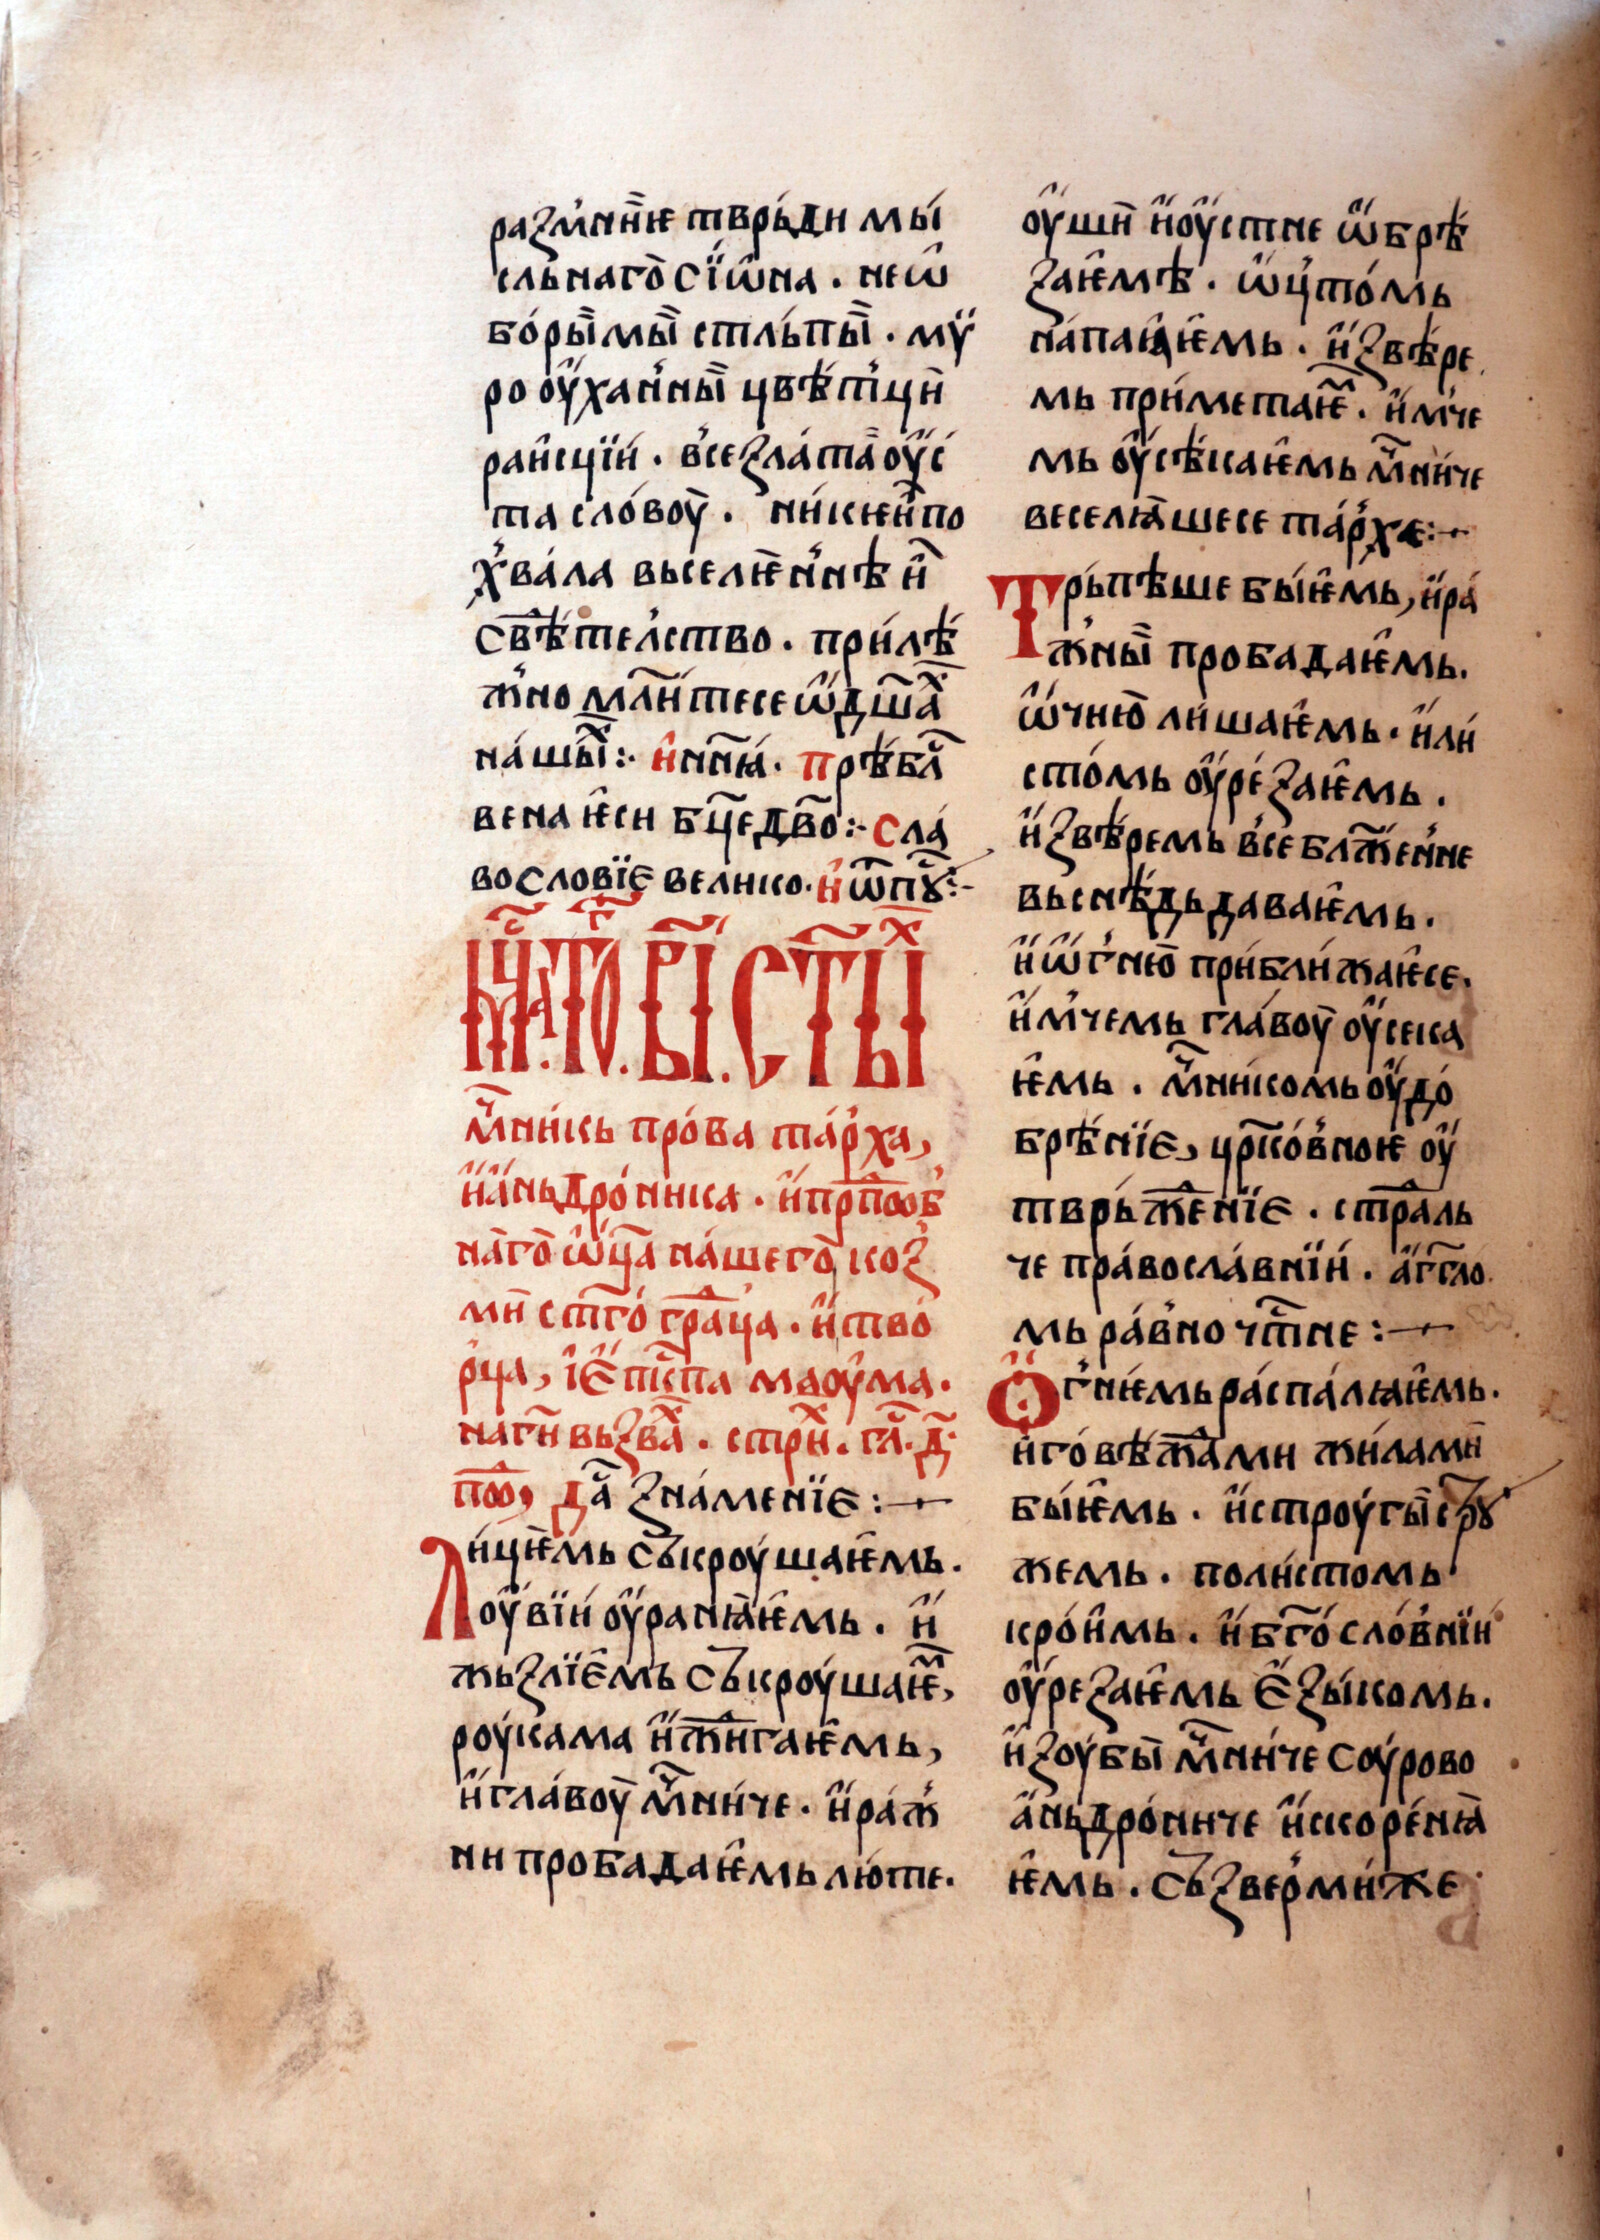 разⸯмнн҄ѥ тврьди мы́
сльнаго̀ сїѡ̑на . неѡ̑
бо́ры̏мы̏ стль́пы̏ . мѵ̈
ро ѹ̑хан҆ны̏ цвѣ́т҆цы̏
раи̑сцїи́ . в҆сезла́таа҄ ѹ̑с́
та сло́воу̏ . ни́кїеи̑ по
х҆ва́ла вьселѥн҆нѣ и҄
свѣ́тел҆ство . при́лѣ́
ж҆но мл҃и́тесе ѡ̑ дш҃а́х
на́шы́х :· и҆ нн҃ꙗ́ . прѣ́бл҃
вена ѥ̑си бц҃е дв҃о :· сла́
вословїе велико . и҆ ѿпꙋ҄ :·
мц҃а то . в҃і . ст҃ы́х
мⷱ҇ни́кь про́ва та́р҆ха ,
и҆ а҆ньдро́ника . и҆ прⷣпоⷣб҆
на̀го̀ ѡ҆ц҃а на́шего̀ коз҆
ми̏ ст҃го́ гра́ⷣца . и҆ тво́
р҆ца , і҆е҆пⷭ҇кпа маоу̑ма .
на гн҃ вьзва́х . стр҃и́х . гл҃а . д҃ .
поⷣ , да҄ зна́менїе : —
Ли́цѥмь сьⷦроу́шаѥ̑мь .
лоу̑вїи́ ѹ̑ранꙗѥ̑мь . и҆
жьзлїе̑мь ськроу́шаѥ̑м ,
роу́кама и҆ жи҄гаѥ̑мь ,
и҆ гла́воу̏ мⷱ҇ни́че . и҆ ра́ж҆
ни пробадаѥ̑мь лю́те .
ѹ̑ши̏ и҆ ѹ̑стне ѡ̑брѣ́
заѥ̑мѣ . ѡ̑ц҆то́мь
на́паꙗѥ̑мь . и҆ звѣ́ре
мь при́метаѥ̑м . и҆ м҆че
мь ѹ̑сѣкаѥ̑мь мⷱ҇ни́че
веселꙗшесе та́р҆хе : —
Трь́пѣше бы́ѥ̑мь , и҆ ра́
ж҆ны̏ пробадаѥ̑мь .
ѡ̑чию̏ ли́шаѥ̑мь . и҆ ли́
сто́мь ѹ̑ре́заѥ̑мь .
и҆ звѣ́ремь в҆се блаж҃ен҆не
вьснѣ́дь даваѥ̑мь .
и҆ ѡ̑г҆ню̏ при́бли́жаѥ̑се .
и҆ м҆чемь гла́воу̏ ѹ̑сека
ѥ̑мь . мⷱ҇ни́комь ѹ̑до́
брѣ́нїе , цр҃ко́в҆ноѥ ѹ̑
тврь́жⷣенїе . страⷣаль
че пра́восла́внїи́ . а҆гг҃ло
мь ра́в҆но чⷭ҇тне : —
Ѻг҆нѥ́мь ра́спа́лꙗѥ̑мь .
и҆ го́вѣжⷣами жи́лами̏
бы́ѥ̑мь . и҆ строу́гы̏ стрꙋ
жемь . поли́стомь
кро́и̑мь . и҆ бг҃осло́в҆нїи́
ѹ̑резаѥ̑мь е҆зы́комь .
и҆ зоу́бы̏ мⷱ҇ни́че соу́рово
а҆ньдро́ниче и҆скоре́нꙗ
ѥ̑мь . сь звер҆ми́же